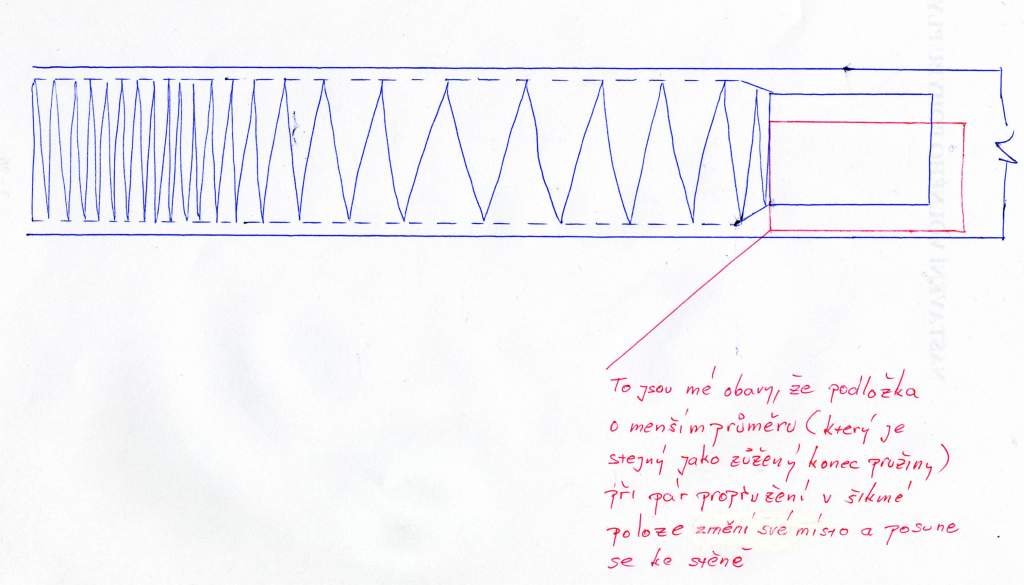 To jsou mé obavy, že podložka
o menším průměru (který je
stejný jako zúžený konec pružiny)
při pár propružení v šikmé
poloze změní své místo a posune
se ke stěně